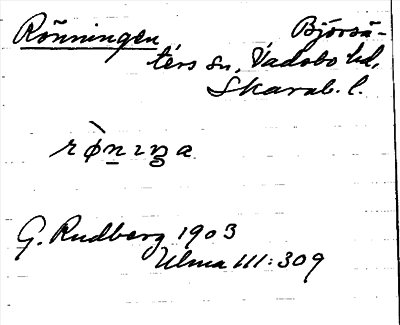 Rönningen Björsä-
ters sn, Vadsbo hd,
Skarab. l.
rø̀nɩŋa
G. Rudberg 1903
Ulma 111:309